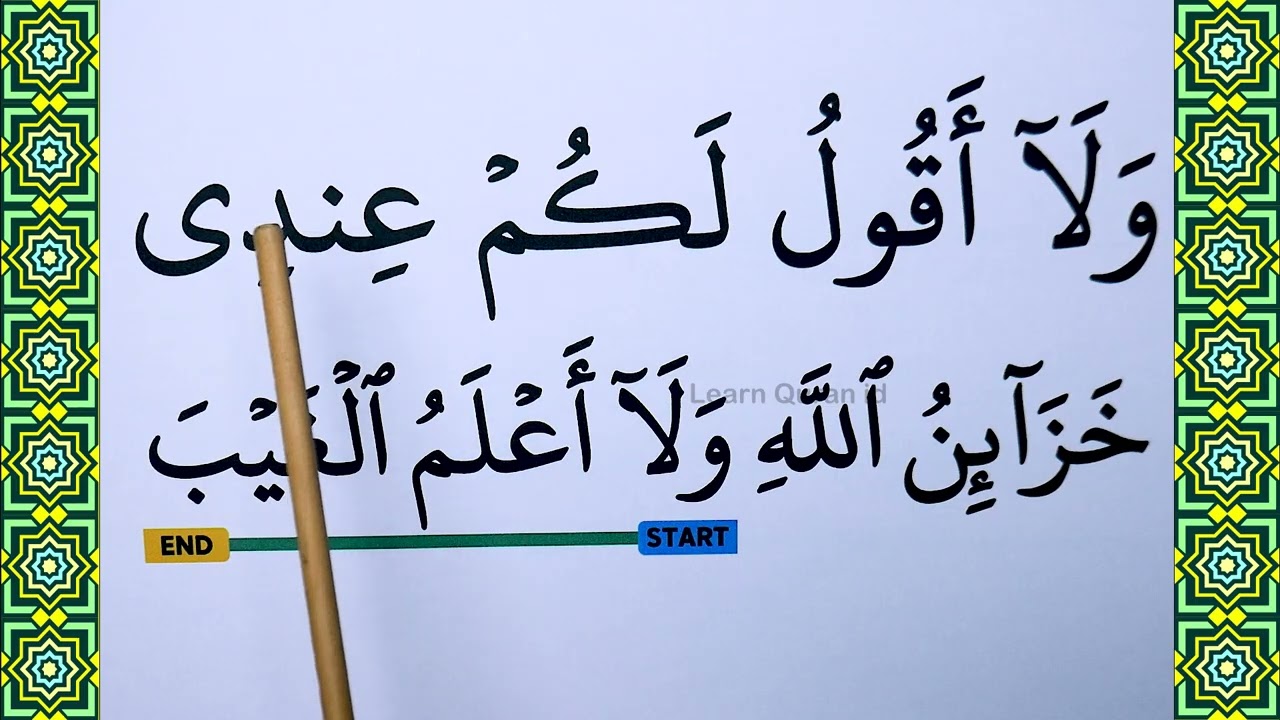 وَلَآ أَقُولُ لَكُمۡ عِندِى
خَزَآئِنُ ٱللَّهِ وَلَآ أَعۡلَمُ ٱلۡغَيۡبَ
Learn Quran id
END START